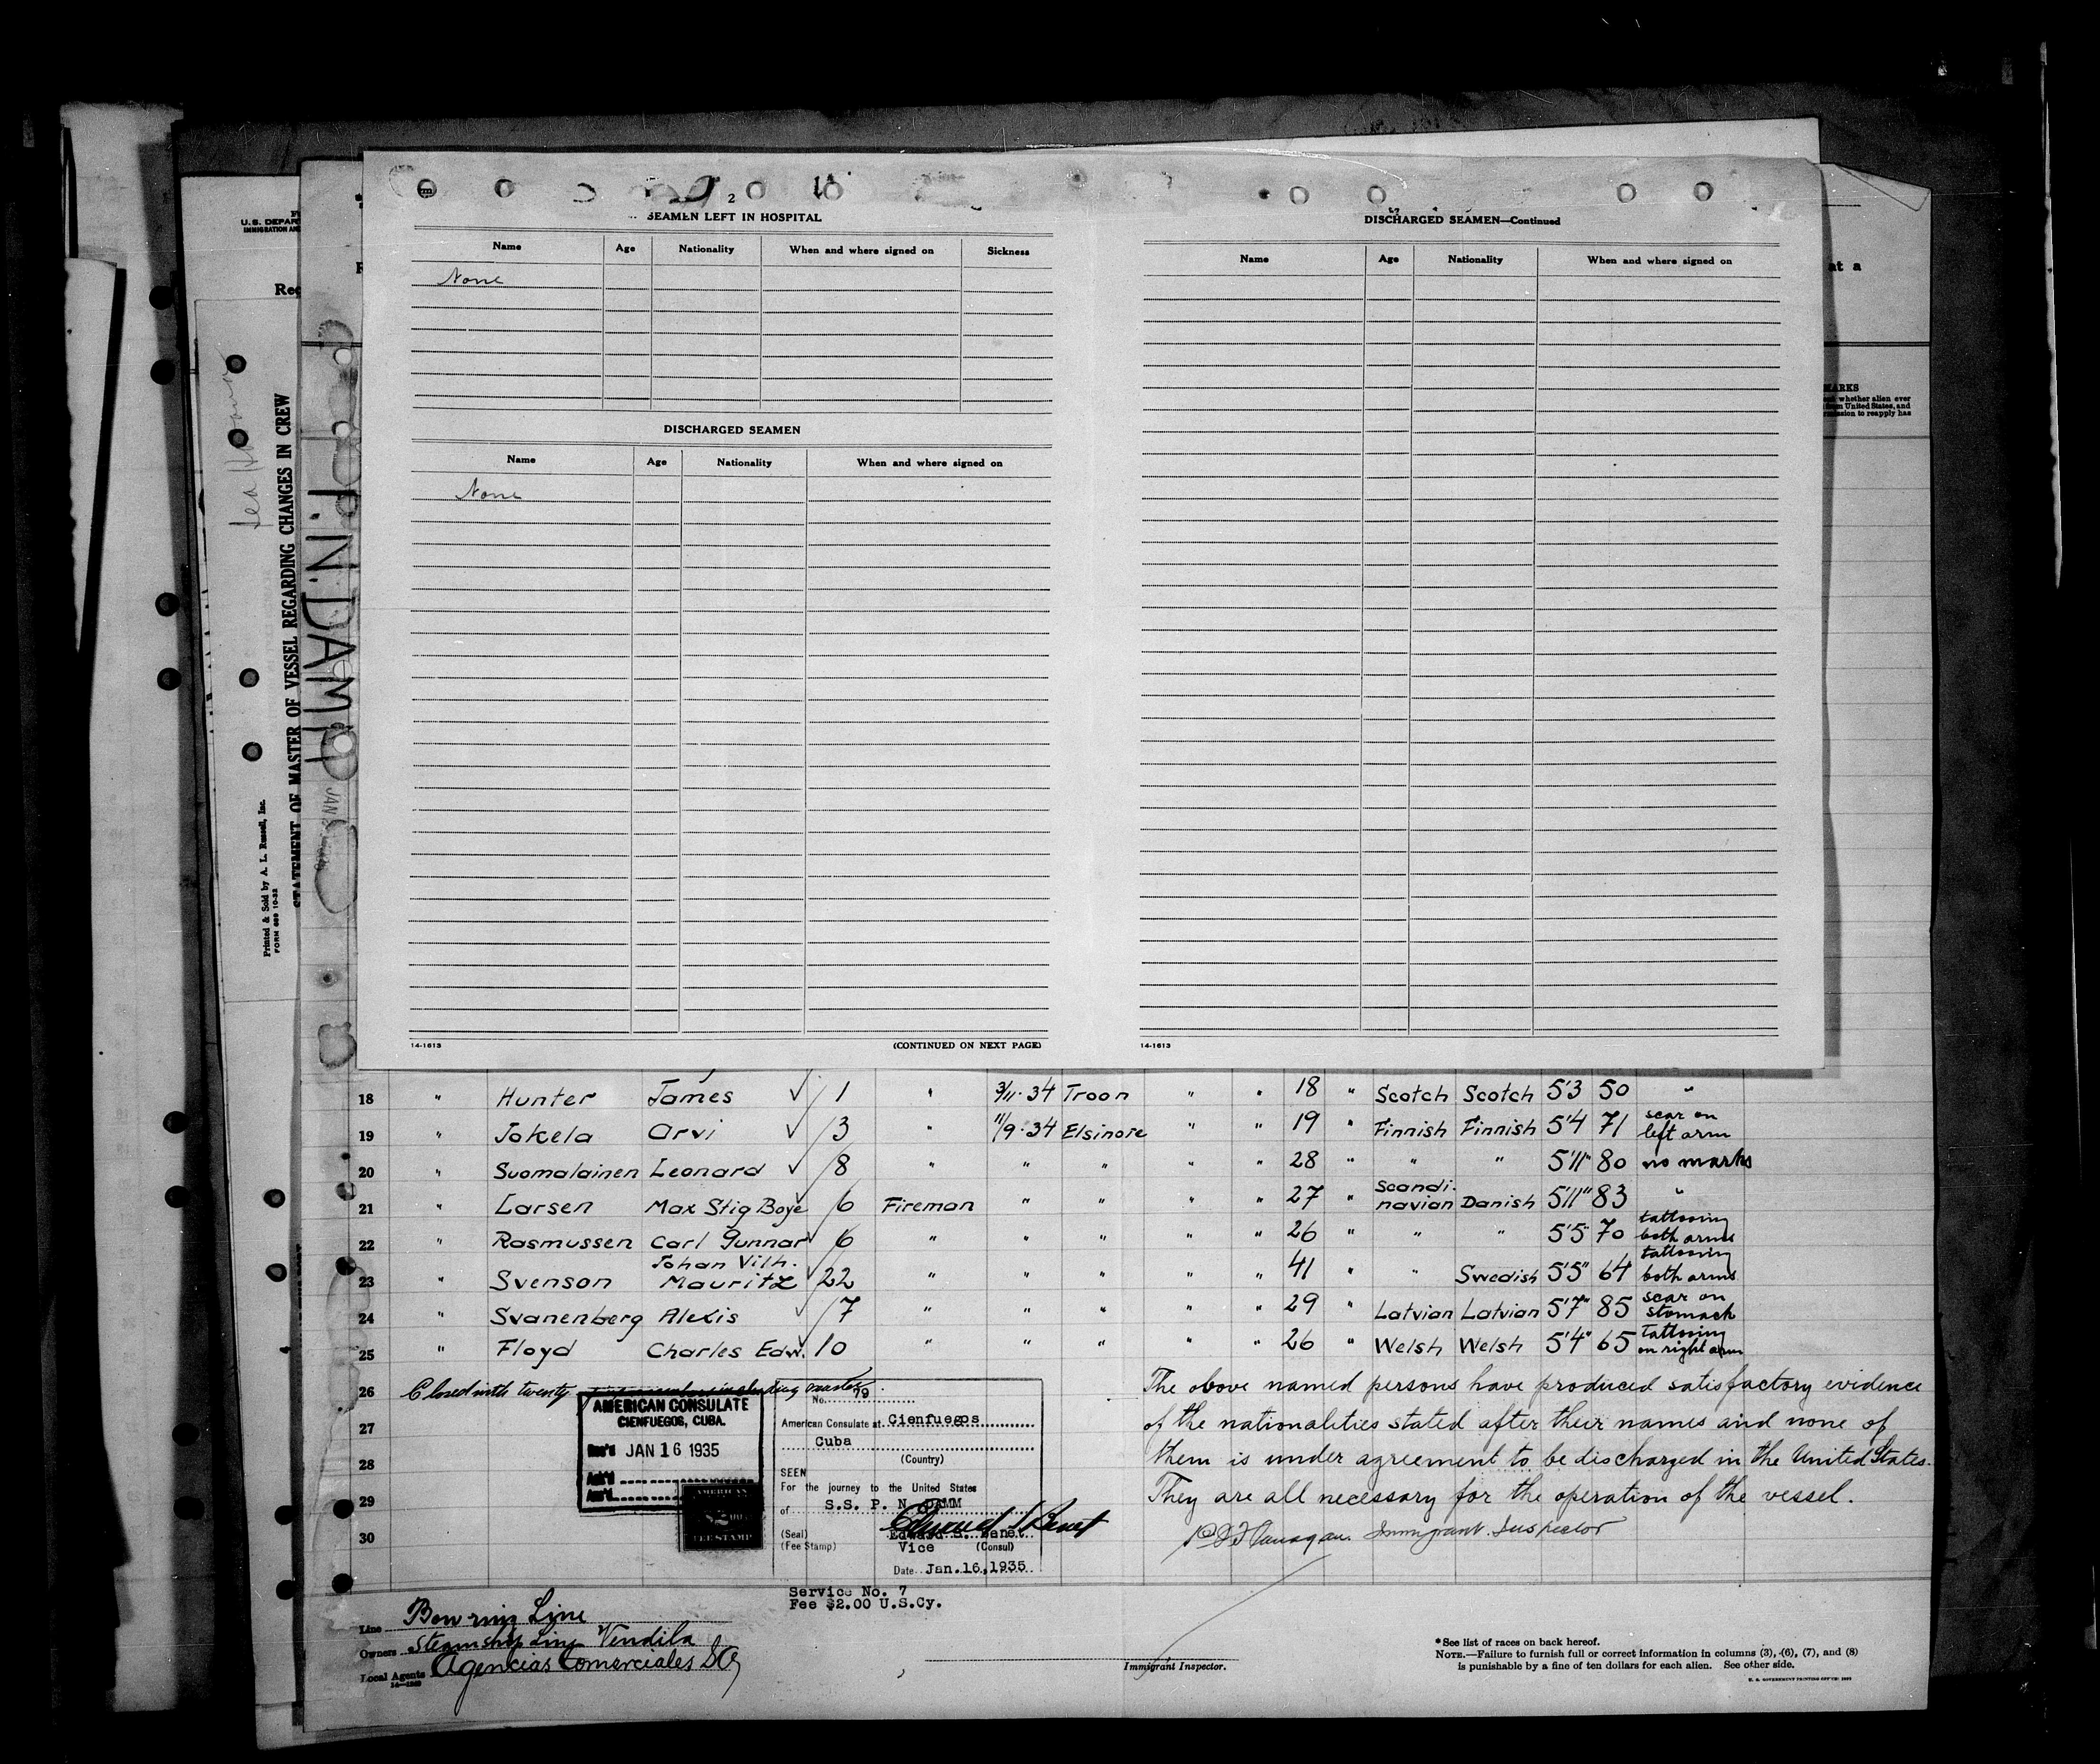 2
SEAMEN LEFT IN HOSPITAL
Name Age Nationality When and where signed on Sickness
None
DISCHARGED SEAMEN
Name Age Nationality When and where signed on
None
14-1613 (CONTINUED ON NEXT PAGE)
DISCHARGED SEAMEN—Continued
Name Age Nationality When and where signed on
14-1613
U.S. DEPAR
IMMIGRATION AN
Rec
at a
MARKS
whether alien ever
from United States, and
permission to reapply has
STATEMENT OF MASTER OF VESSEL REGARDING CHANGES IN CREW
Printed & Sold by A. L. Russell, Inc.
FORM 689 10-32
P. N. DAMM
JAN
18 " Hunter James √ 1 " 3/11.34 Troon " " 18 " Scotch Scotch 5'3 50 "
19 " Jokela Arvi √ 3 " 11/9.34 Elsinore " " 19 " Finnish Finnish 5'4 71 scar on left arm
20 " Suomalainen Leonard √ 8 " " " " " 28 " " " 5'11" 80 no marks
21 " Larsen Max Stig Boye √ 6 Fireman " " " " 27 " Scandinavian Danish 5'11" 83 "
22 " Rasmussen Carl Gunnar √ 6 " " " " " 26 " " " 5'5" 70 tattooing both arms
23 " Svenson Johan Vilh. Mauritz √ 22 " " " " " 41 " " Swedish 5'5" 64 tattooing both arms
24 " Svanenberg Alexis √ 7 " " " " " 29 " Latvian Latvian 5'7" 85 scar on stomach
25 " Floyd Charles Edw. √ 10 " " " " " 26 " Welsh Welsh 5'4" 65 Tattooing on right arm
26 Closed with twenty members including master.
27
28
29
30
The above named persons have produced satisfactory evidence
of the nationalities stated after their names and none of
them is under agreement to be discharged in the United States.
They are all necessary for the operation of the vessel.
Immigrant Inspector
AMERICAN CONSULATE
CIENFUEGOS, CUBA.
Rec'd JAN 16 1935
Ack'd
Ans'd
AMERICAN
$2.00
FEE STAMP
No. 79
American Consulate at Cienfuegos
Cuba
(Country)
SEEN
For the journey to the United States
of S.S. P. N. DAMM
(Seal) Edward S. Benet
(Fee Stamp) Vice (Consul)
Date Jan.16,1935
Service No. 7
Fee $2.00 U.S.Cy.
Line Bowring Line
Owners Steamship Line Vendila
Local Agents Agencias Comerciales SA
Immigrant Inspector.
*See list of races on back hereof.
NOTE.—Failure to furnish full or correct information in columns (3), (6), (7), and (8)
is punishable by a fine of ten dollars for each alien. See other side.